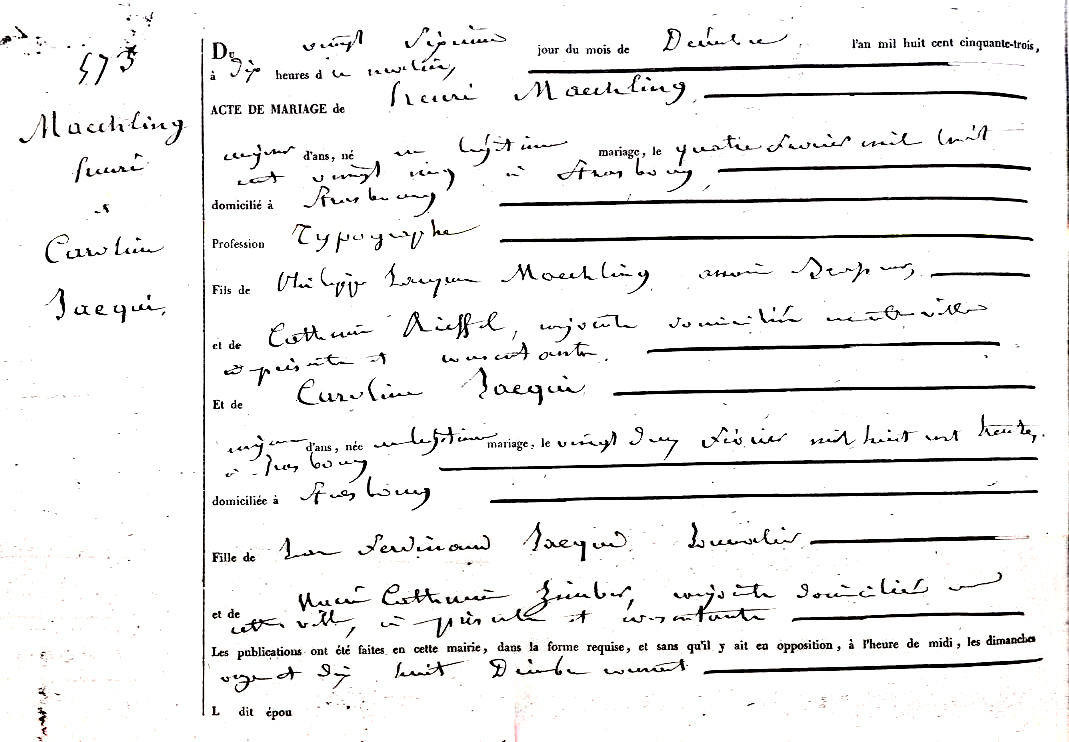 573
Maechling
henri
et
Caroline
Jaequi,
Du vingt septième jour du mois de Décembre l'an mil huit cent cinquante-trois,
à dix heures du matin,
ACTE DE MARIAGE de henri Maechling
majeur d'ans, né en légitime mariage, le quatre février mil huit
cent vingt cinq à Strasbourg
domicilié à Strasbourg
Profession Typographe
Fils de Philippe Jacques Maechling, ancien
et de Catherine Rieffel, conjoints domiciliés en cette ville
à présents et consentants.
Et de Caroline Jaequi
majeure d'ans, née en légitime mariage, le vingt deux février mil huit cent trente,
à Strasbourg
domiciliée à Strasbourg
Fille de Jean Ferdinand Jaequi, Journalier
et de Marie Catherine Zimber, conjoints domiciliés en
cette ville, à présents et consentants
Les publications ont été faites en cette mairie, dans la forme requise, et sans qu'il y ait eu opposition, à l'heure de midi, les dimanches
onze et dix huit Décembre courant
L dit épou